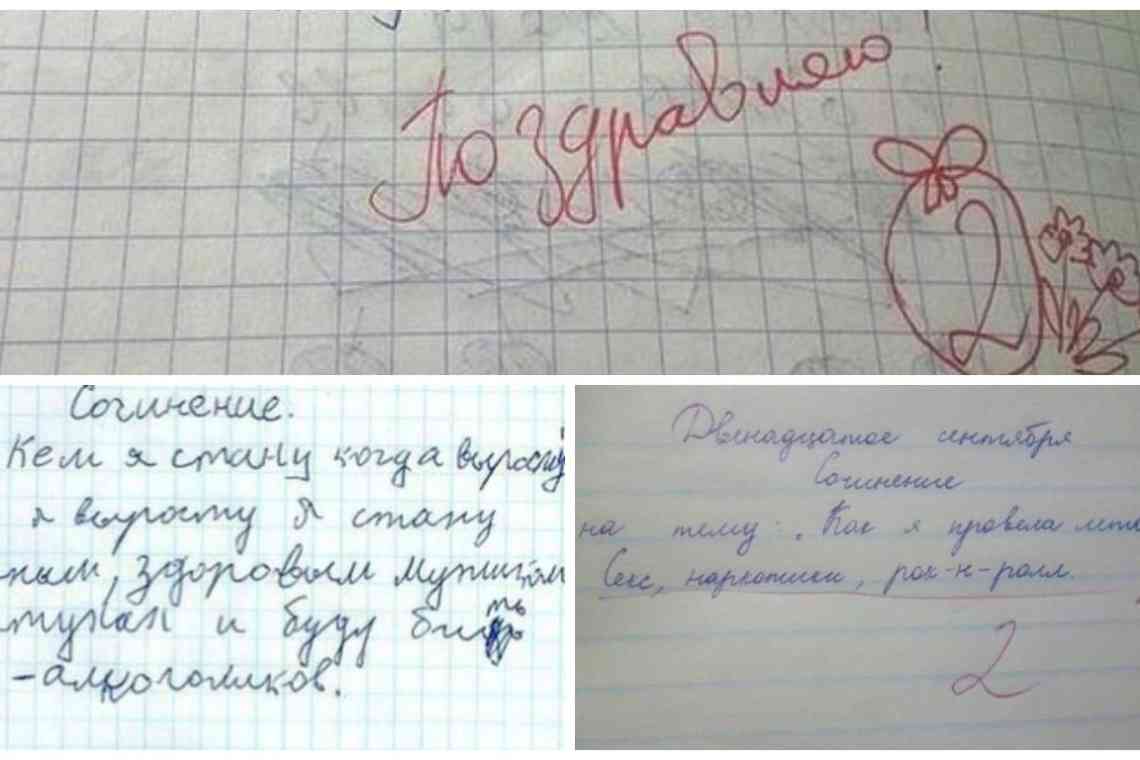 Поздравляю
2
Сочинение.
Кем я стану когда вырасту
я выросту я стану
ным, здоровым мужиком
и буду бить
-алкоголиков.
Двенадцатое сентября
Сочинение
на тему: "Как я провела лето
Секс, наркотики, рок-н-ролл.
2